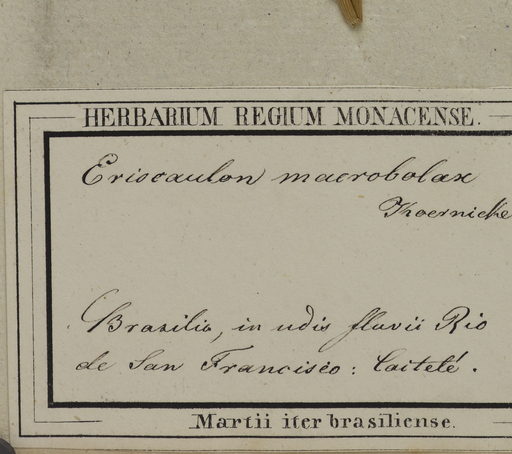 HERBARIUM REGIUM MONACENSE.
Eriocaulon macrobolax
Koernicke
Brasilia, in udis fluvii Rio
de San Francisco: Caiteté.
Martii iter brasiliense.